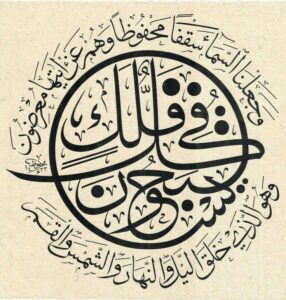 وَجَعَلْنَا السَّمَاءَ سَقْفًا مَحْفُوظًا وَهُمْ عَنْ آيَاتِهَا مُعْرِضُونَ
وَهُوَ الَّذِي خَلَقَ اللَّيْلَ وَالنَّهَارَ وَالشَّمْسَ وَالْقَمَرَ
كُلٌّ فِي فَلَكٍ يَسْبَحُونَ